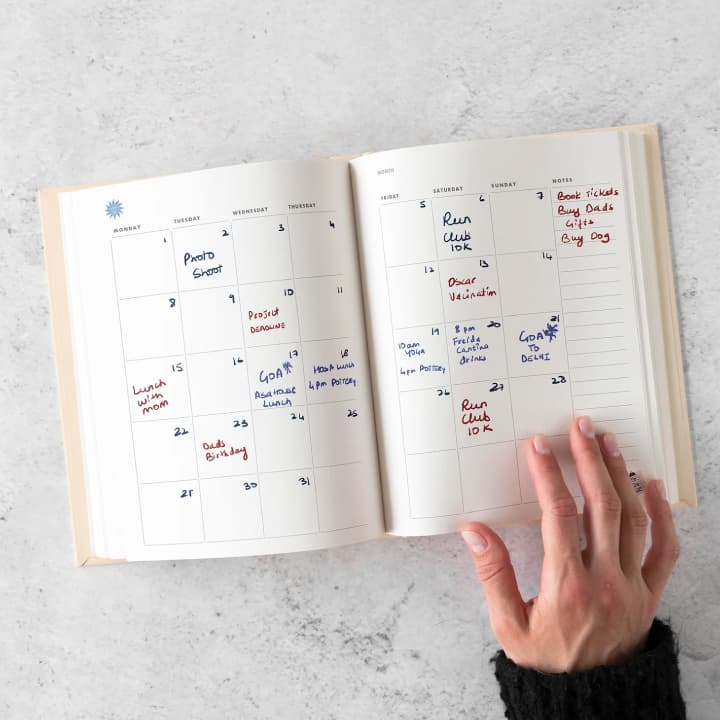 MONDAY TUESDAY WEDNESDAY THURSDAY
1 2 3 4
Photo
Shoot
8 9 10 11
Project
DEADLINE
15 16 17 18
Lunch
with
mom
GOA
Lunch
Lunch
4pm Pottery
22 23 24 25
Dads
Birthday
30 31
MONTH
FRIDAY SATURDAY SUNDAY NOTES
5 6 7
Run
Club
10K
Book Tickets
Buy Dads
Gifts
Buy Dog
12 13 14
Oscar
19 20 21
10am
YOGA
4pm Pottery
8pm
Freida
Cantina
drinks
GOA
TO
DELHI
26 27 28
Run
Club
10K